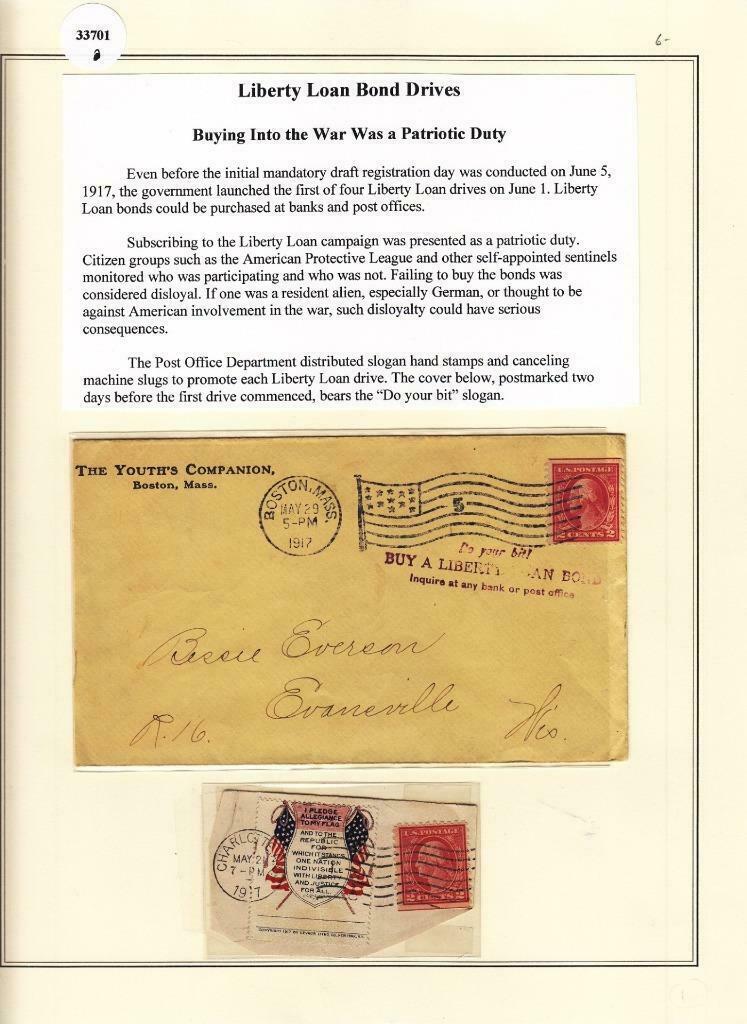 33701
2
6-
Liberty Loan Bond Drives
Buying Into the War Was a Patriotic Duty
Even before the initial mandatory draft registration day was conducted on June 5,
1917, the government launched the first of four Liberty Loan drives on June 1. Liberty
Loan bonds could be purchased at banks and post offices.
Subscribing to the Liberty Loan campaign was presented as a patriotic duty.
Citizen groups such as the American Protective League and other self-appointed sentinels
monitored who was participating and who was not. Failing to buy the bonds was
considered disloyal. If one was a resident alien, especially German, or thought to be
against American involvement in the war, such disloyalty could have serious
consequences.
The Post Office Department distributed slogan hand stamps and canceling
machine slugs to promote each Liberty Loan drive. The cover below, postmarked two
days before the first drive commenced, bears the “Do your bit” slogan.
THE YOUTH'S COMPANION,
Boston, Mass.
BOSTON, MASS.
MAY 29
5-PM
1917
5
U.S. POSTAGE
2 CENTS 2
Do your bit!
BUY A LIBERTY AN BOND
Inquire at any bank or post office
Bessie Everson
Evansville
R. 16. Wis.
CHARLOTTE
MAY 2
7-PM
1917
I PLEDGE
ALLEGIANCE
TO MY FLAG
AND TO THE
REPUBLIC
FOR
WHICH IT STANDS
ONE NATION
INDIVISIBLE
WITH LIBERTY
AND JUSTICE
FOR ALL
U.S. POSTAGE
2 CENTS 2